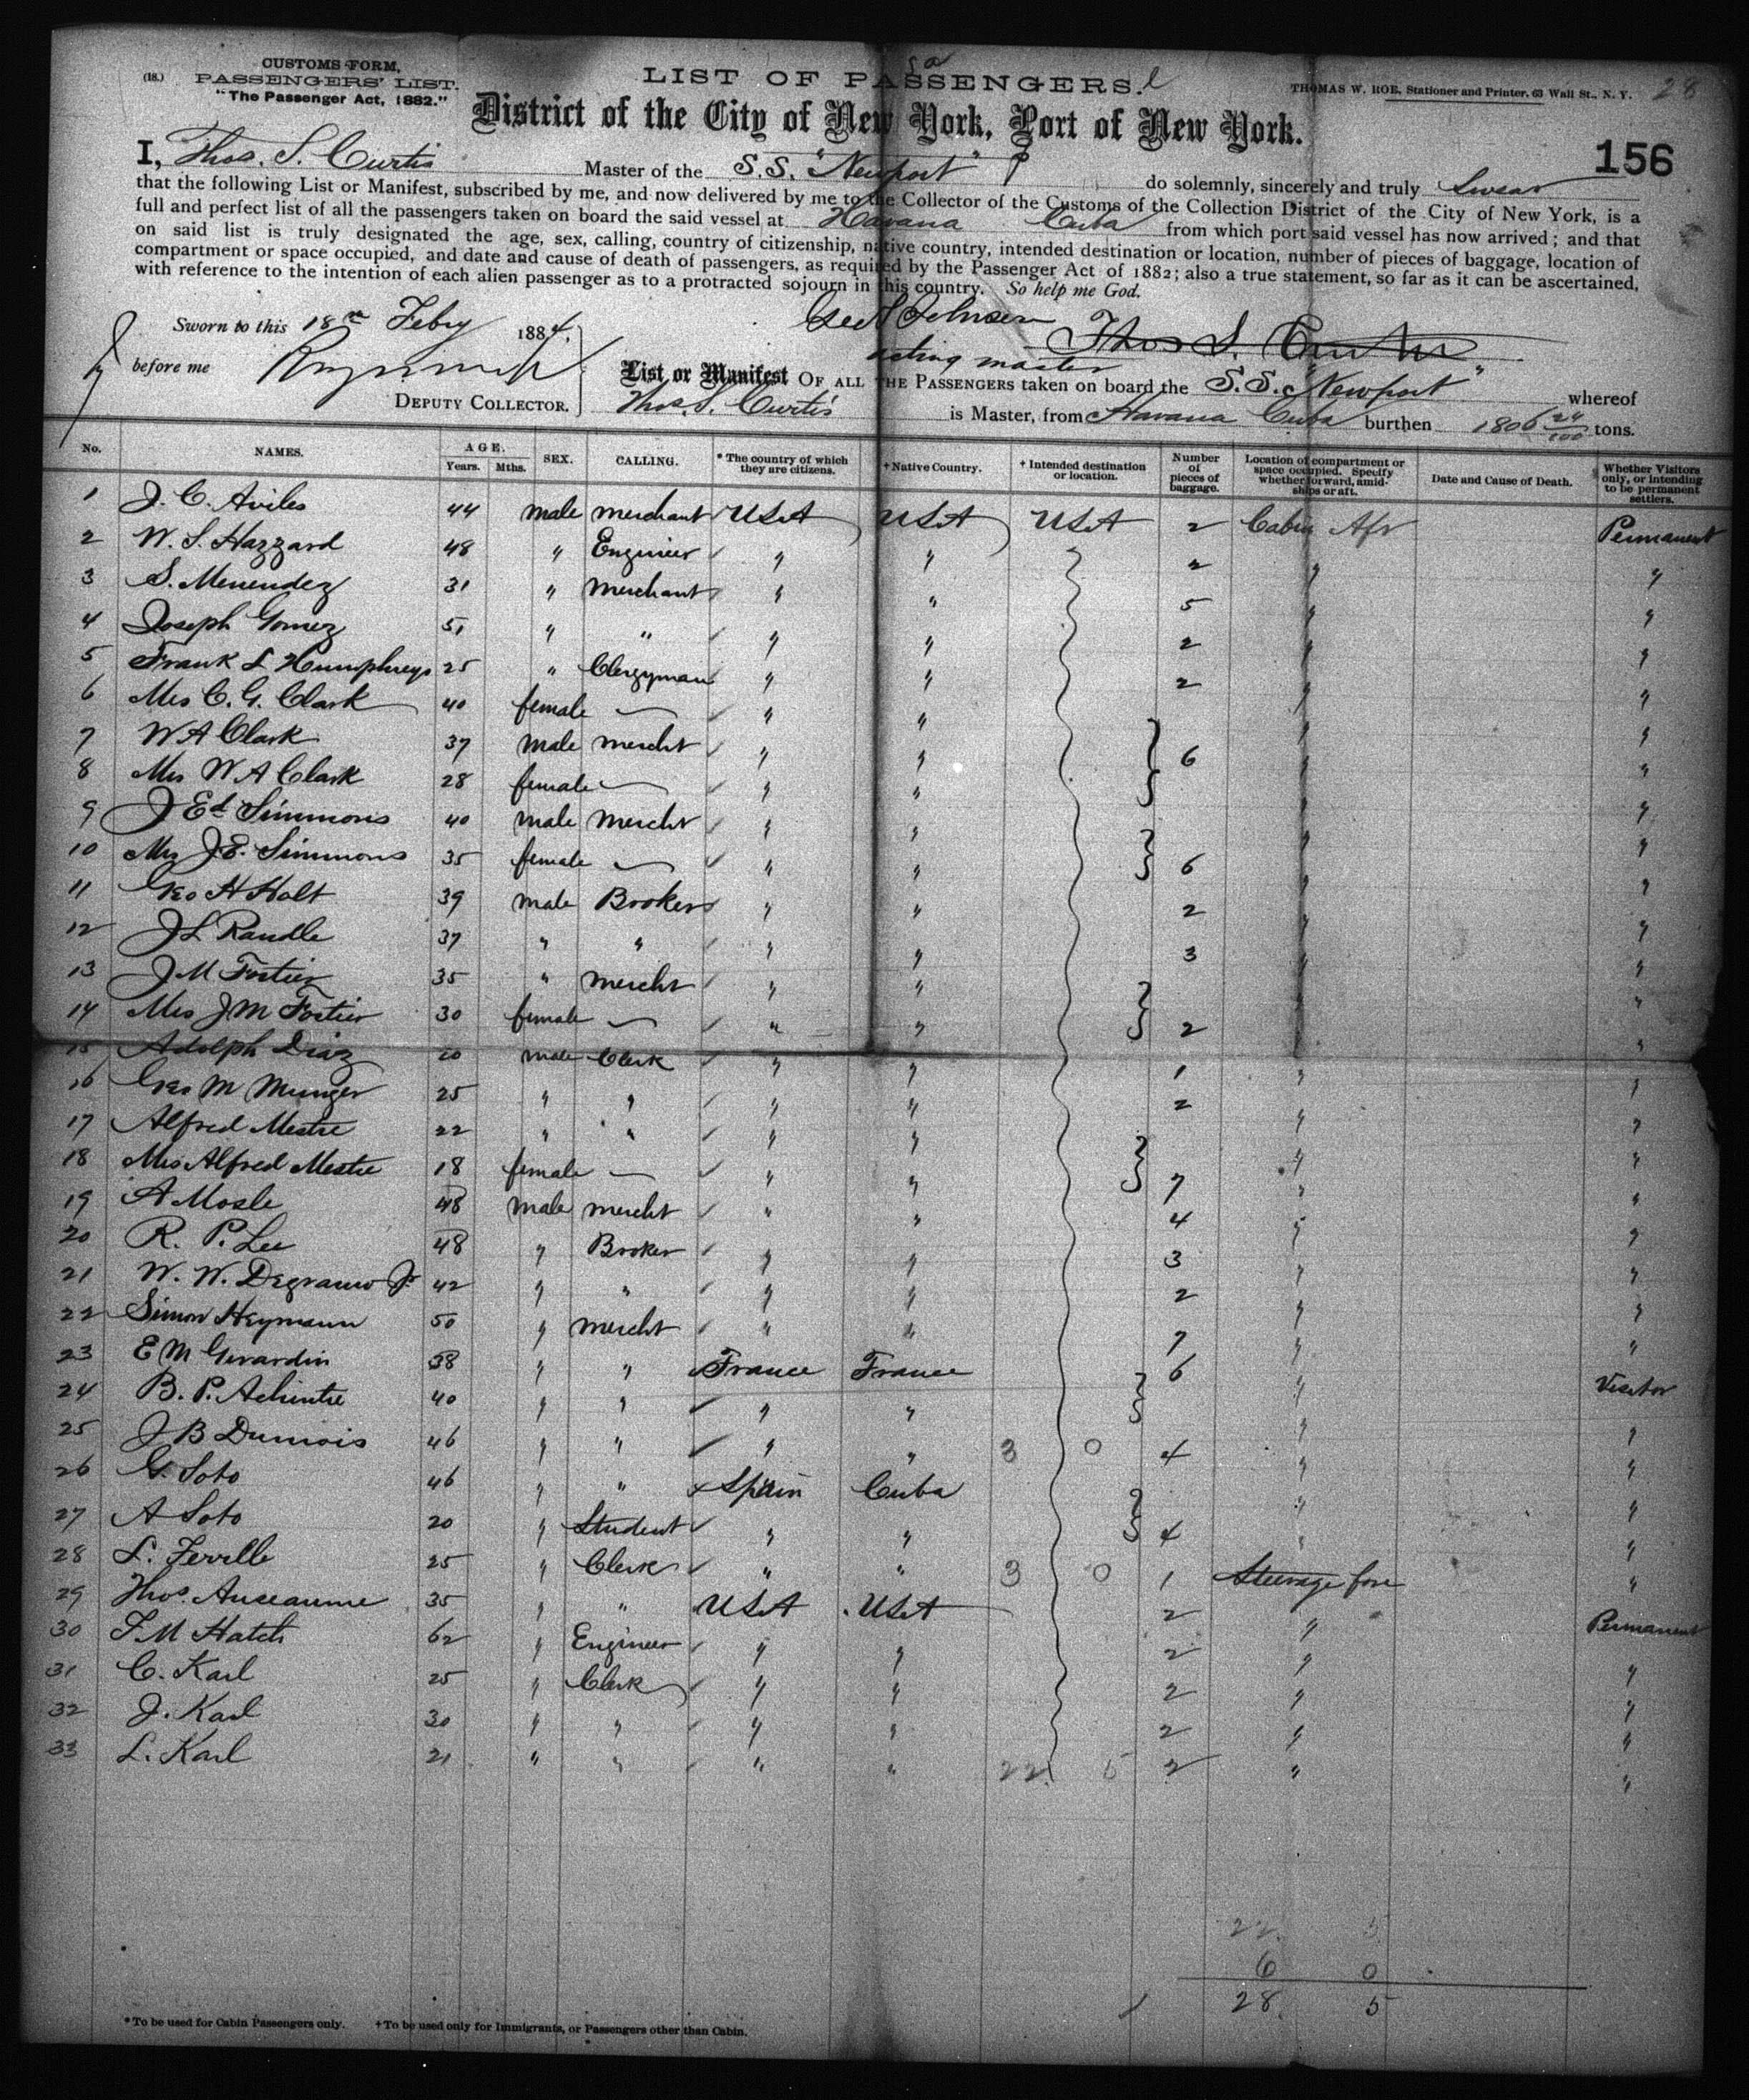 28
(18.)
CUSTOMS FORM,
PASSENGERS' LIST.
"The Passenger Act, 1882."
LIST OF PASSENGERS.
THOMAS W. ROE, Stationer and Printer, 63 Wall St., N. Y.
District of the City of New York, Port of New York.
156
I, Thos. S. Curtis Master of the S.S. "Newport" do solemnly, sincerely and truly Swear
that the following List or Manifest, subscribed by me, and now delivered by me to the Collector of the Customs of the Collection District of the City of New York, is a
full and perfect list of all the passengers taken on board the said vessel at Havana Cuba from which port said vessel has now arrived; and that
on said list is truly designated the age, sex, calling, country of citizenship, native country, intended destination or location, number of pieces of baggage, location of
compartment or space occupied, and date and cause of death of passengers, as required by the Passenger Act of 1882; also a true statement, so far as it can be ascertained,
with reference to the intention of each alien passenger as to a protracted sojourn in this country. So help me God.
Sworn to this 18th Febry 1884.
Johnson
Thos S. Curtis
acting master
before me
DEPUTY COLLECTOR.
List or Manifest OF ALL THE PASSENGERS taken on board the S.S. "Newport" whereof
Thos. S. Curtis is Master, from Havana Cuba burthen 1806 24/100 tons.
No. NAMES. AGE. Years. Mths. SEX. CALLING. * The country of which they are citizens. † Native Country. † Intended destination or location. Number of pieces of baggage. Location of compartment or space occupied. Specify whether forward, amidships or aft. Date and Cause of Death. Whether Visitors only, or intending to be permanent settlers.
1 J. C. Aviles 44 male merchant USA USA USA 2 Cabin Aft Permanent
2 W. S. Hazzard 48 " Engineer " " 2 " "
3 S. Menendez 31 " merchant " " 5 " "
4 Joseph Gomez 51 " " " " 2 " "
5 Frank L Humphreys 25 " Clergyman " " 2 " "
6 Mrs C. G. Clark 40 female — " " " "
7 W A Clark 37 male mercht " " 6 " "
8 Mrs W A Clark 28 female — " " " "
9 J Ed Simmons 40 male mercht " " " "
10 Mrs J. E. Simmons 35 female — " " 6 " "
11 Geo H Holt 39 male Broker " " 2 " "
12 J L Randle 37 " " " " 3 " "
13 J M Fortier 35 " mercht " " " "
14 Mrs J M Fortier 30 female — " " 2 " "
15 Adolph Diaz 20 male Clerk " " 1 " "
16 Geo M Munger 25 " " " " 2 " "
17 Alfred Mestre 22 " " " " " "
18 Mrs Alfred Mestre 18 female — " " 7 " "
19 A Mosle 48 male mercht " " 4 " "
20 R. P. Lee 48 " Broker " " 3 " "
21 W. W. Degrauw Jr 42 " " " " 2 " "
22 Simon Heymann 50 " mercht " " 7 " "
23 E M Girardin 38 " " France France 6 " Visitor
24 B. P. Achintre 40 " " " " " "
25 J B Dumois 46 " " " " 3 0 4 " "
26 G. Soto 46 " " Spain Cuba " "
27 A Soto 20 " Student " " 4 " "
28 L. 25 " Clerk " " 3 0 1 Steerage fore "
29 Thos. Auseaume 35 " " USA USA 2 " Permanent
30 F M Hatch 62 " Engineer " " 2 " "
31 C. Karl 25 " Clerk " " 2 " "
32 J. Karl 30 " " " " 2 " "
33 L. Karl 21 " " " " 22 5 2 " "
22 5
6 0
28 5
* To be used for Cabin Passengers only. † To be used only for Immigrants, or Passengers other than Cabin.